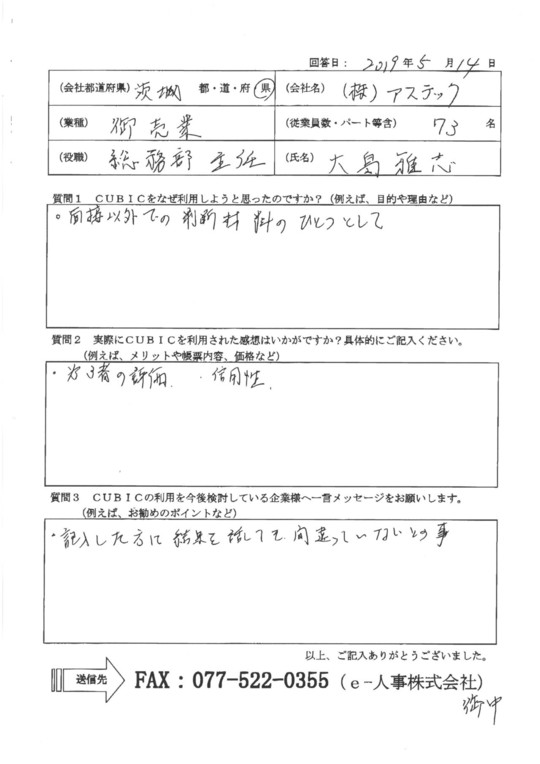 回答日： 2019年5月14日
（会社都道府県） 茨城 都・道・府・県
（会社名） （株）アステック
（業種） 卸売業
（従業員数・パート等含） 73 名
（役職） 総務部 主任
（氏名） 大島 雅志
質問１ ＣＵＢＩＣをなぜ利用しようと思ったのですか？（例えば、目的や理由など）
。面接以外での判断材料のひとつとして
質問２ 実際にＣＵＢＩＣを利用された感想はいかがですか？具体的にご記入ください。
（例えば、メリットや帳票内容、価格など）
・ 者の評価. ・信用性.
質問３ ＣＵＢＩＣの利用を今後検討している企業様へ一言メッセージをお願いします。
（例えば、お勧めのポイントなど）
・記入した方に結果を話しても.間違っていないとの事
以上、ご記入ありがとうございました。
送信先 FAX：077-522-0355（ｅ-人事株式会社）
御中